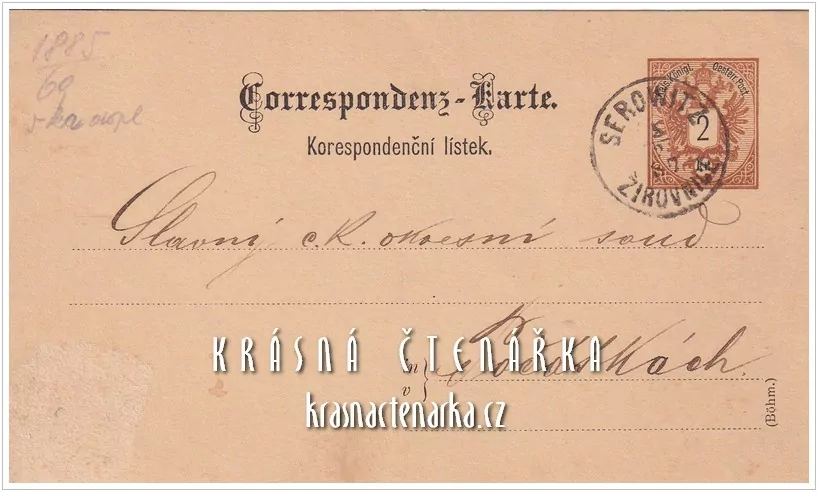 1885
69
Correspondenz-Karte.
Korespondenční lístek.
Kais. Königl. Oesterr. Post.
2
SEROWITZ
ŽIROVNICE
Slavný c.k. okresní soud
KRÁSNÁ ČTENÁŘKA
in
v
v Počátkách.
krasnactenarka.cz
(Böhm.)